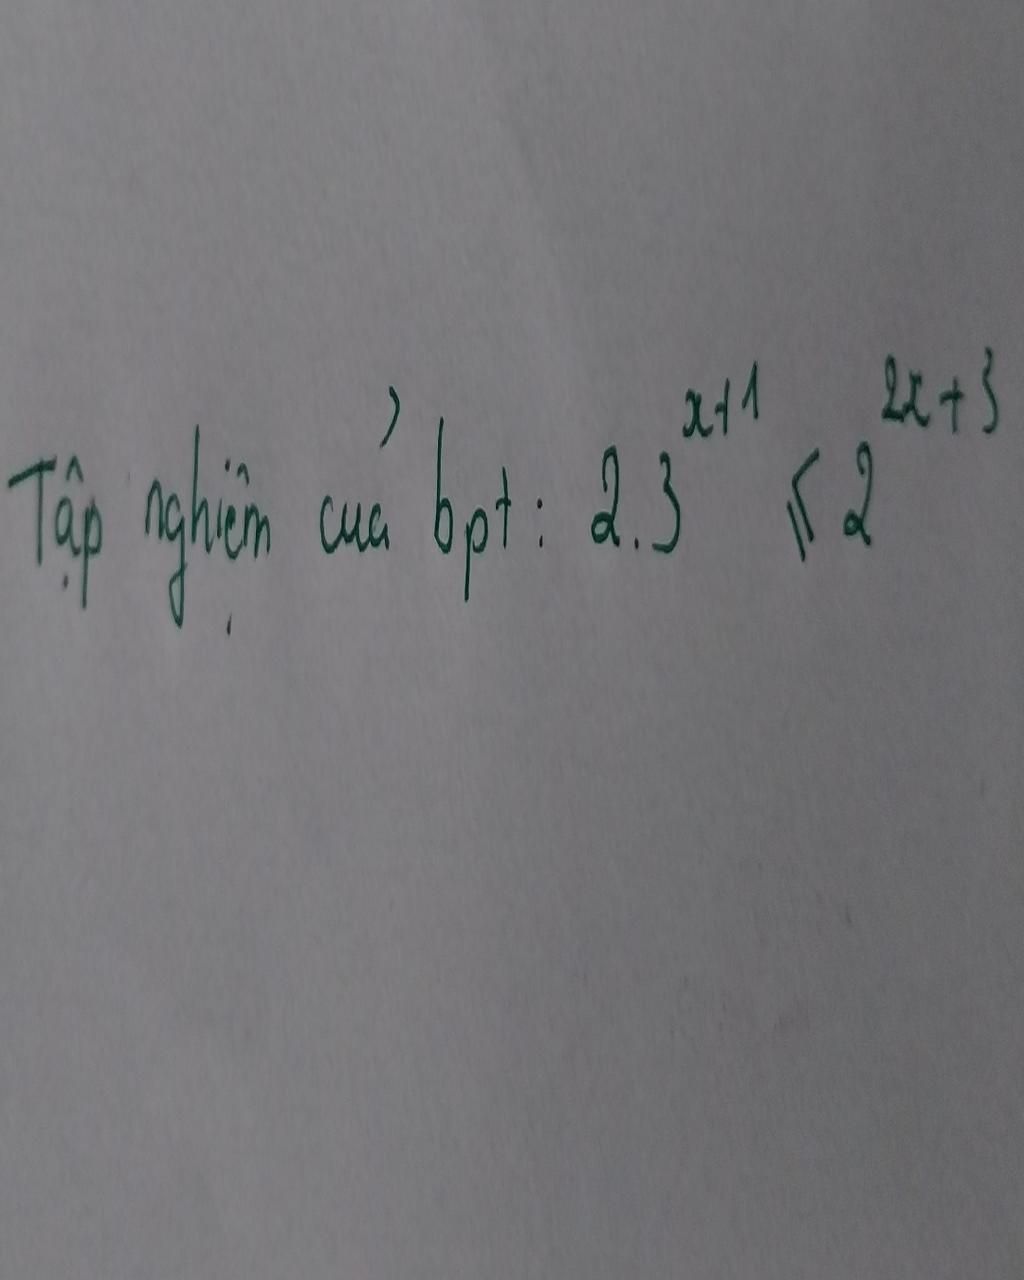 Tập nghiệm của bpt: 2.3^{x+1} ≤ 2^{2x+3}